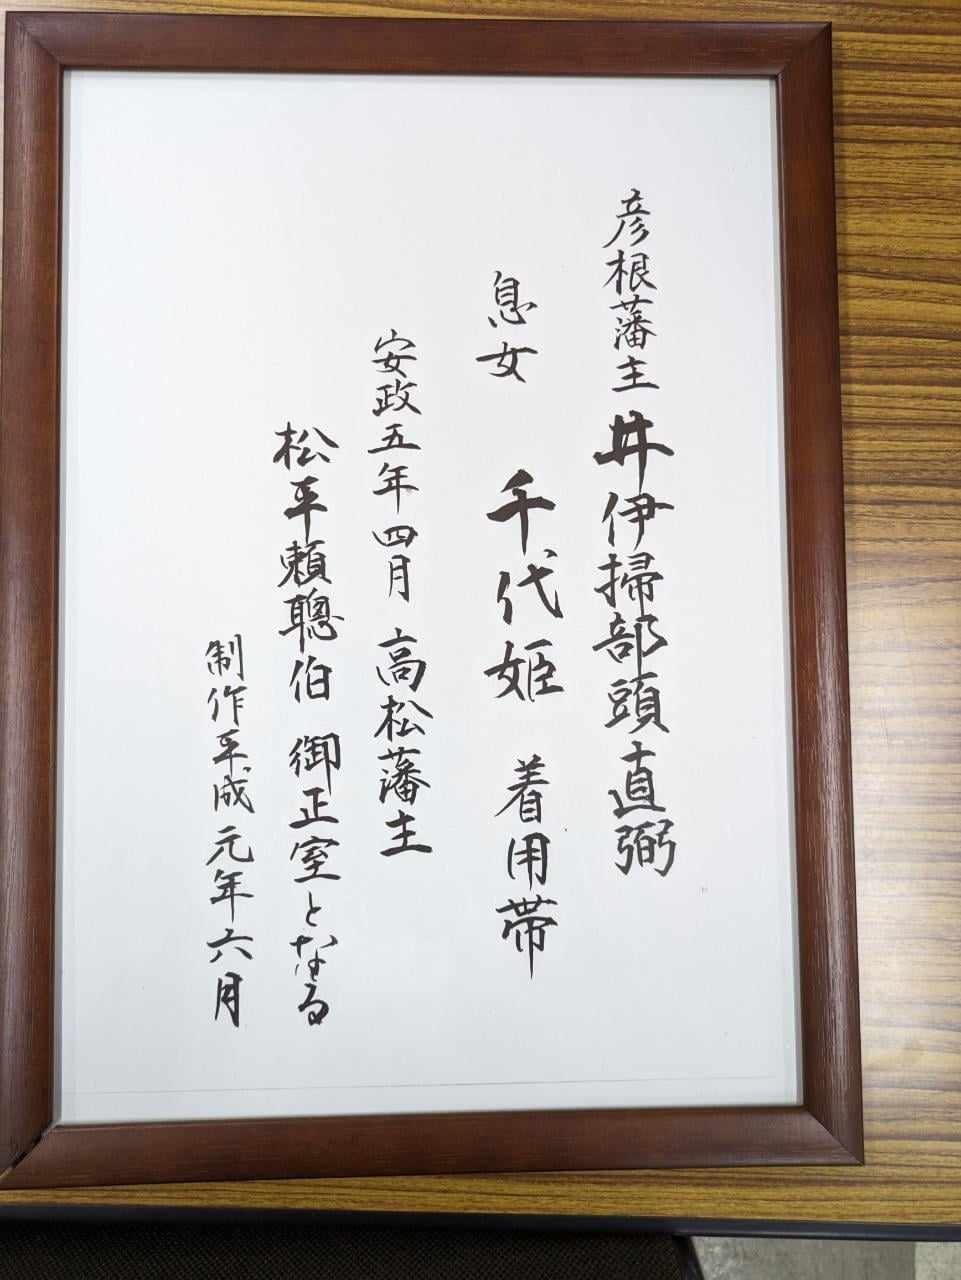 彦根藩主 井伊掃部頭直弼
息女 千代姫 着用帯
安政五年四月 高松藩主
松平頼聰伯 御正室となる
制作平成元年六月